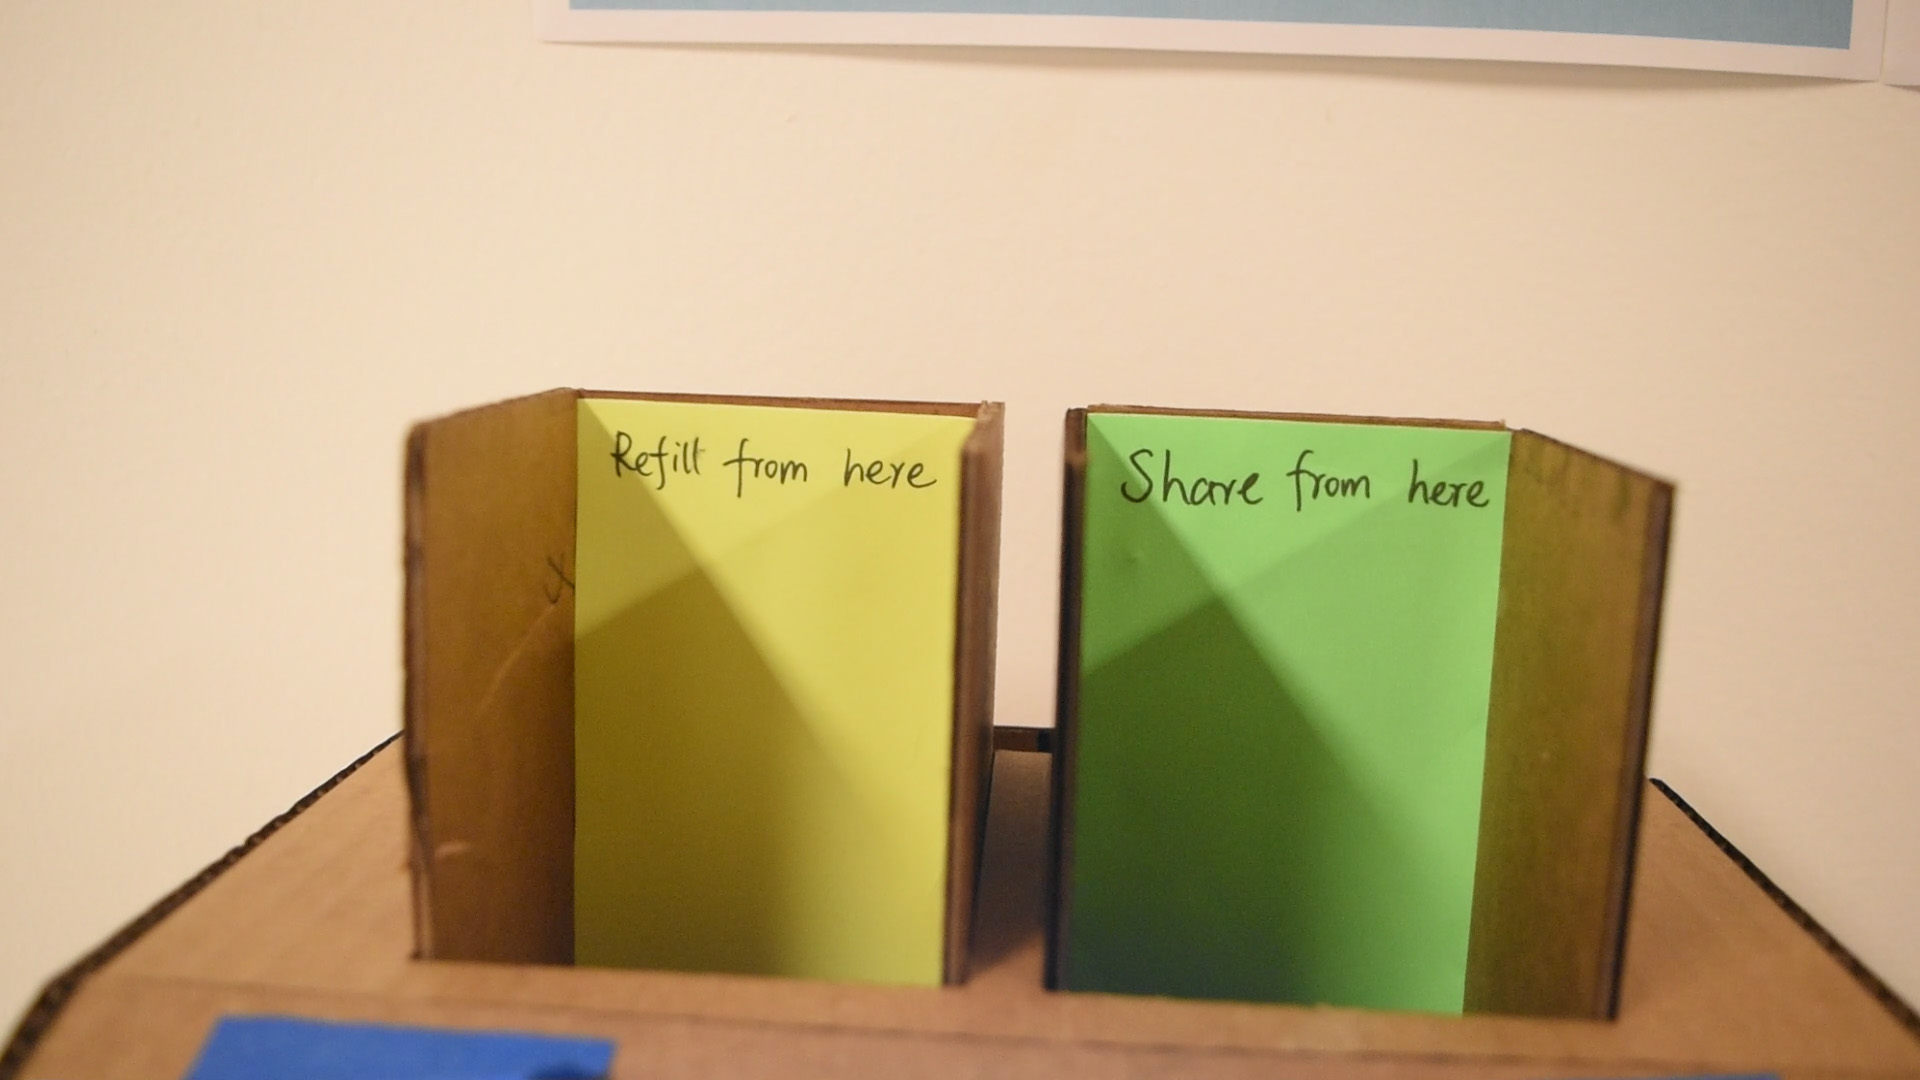 Refill from here
Share from here